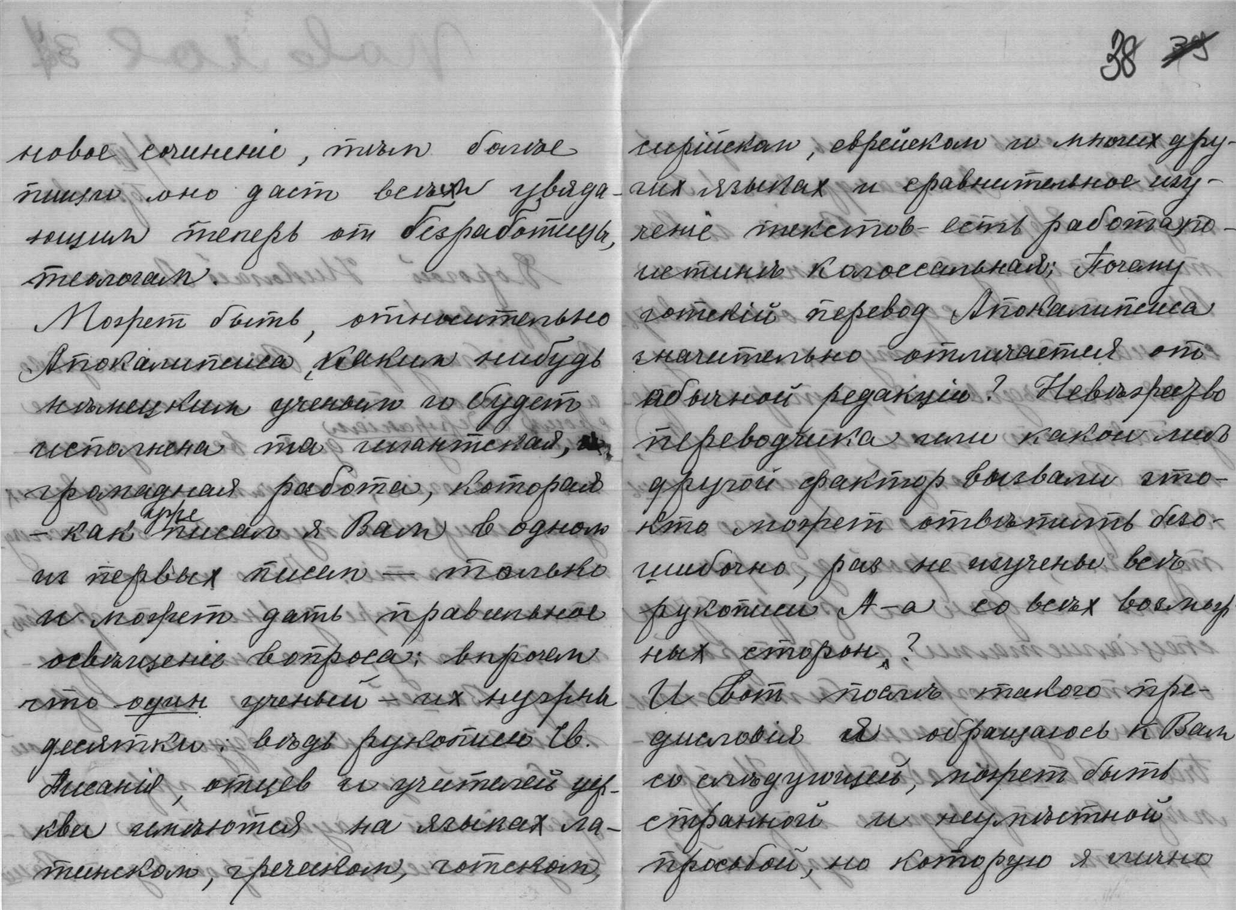 38 39
новое сочиненіе, тѣмъ болѣе
пищи оно даст всѣхъ увяда-
ющим теперь от безработицы,
теологам.
Может быть, относительно
Апокалипсиса каким нибудь
нѣмецким ученым и будет
исполнена та гигантская,
громадная работа, которая
– как уже писал я Вам в одном
из первых писем — только
и может дать правильное
освѣщеніе вопроса; впрочем
что один ученый – их нужны
десятки: вѣдь рукописи Св.
Писанія, отцев и учителей цер-
кви имѣются на языках ла-
тинском, греческом, готском,
сирійском, еврейском и многих дру-
гих языках и сравнительное изу-
ченіе текстов – есть работа по-
истинѣ колоссальная; Почему
готскій перевод Апокалипсиса
значительно отличается от
обычной редакціи? Невѣжество
переводчика или какой либо
другой фактор вызвали это –
кто может отвѣтить безо-
шибочно, раз не изучены всѣ
рукописи А–а со всѣх возмож-
ных сторон?
И вот послѣ такого пре-
дисловія я обращаюсь к Вам
со слѣдующей, может быть
странной и неумѣстной
просьбой, но которую я лично